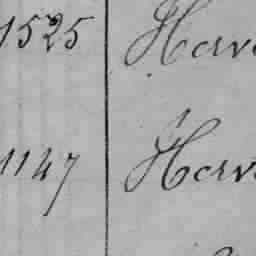 1525 Horv
1147 Horv